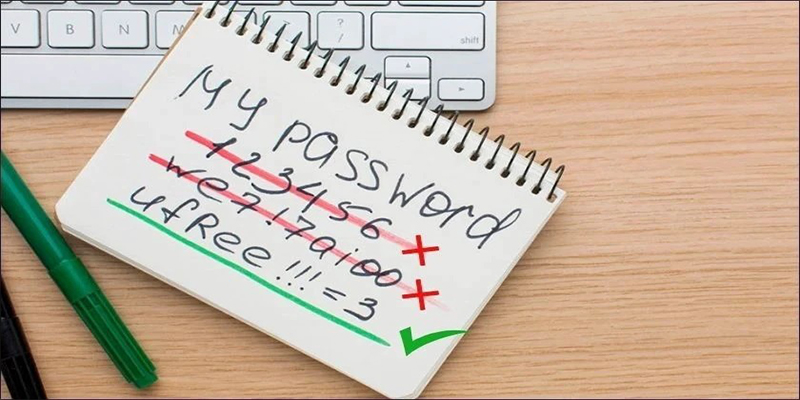 V B N M < , > . ? /
shift
My password
123456
we7!7aioo
ufRee!!!=3